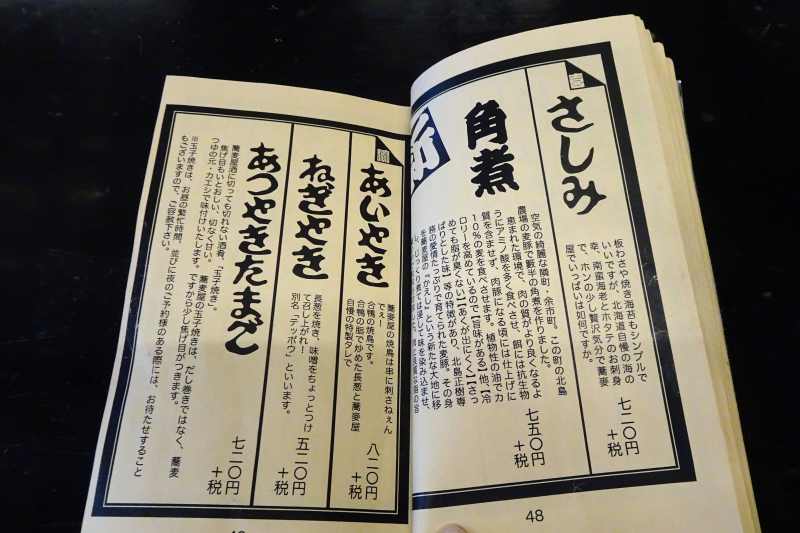 さしみ
板わさや焼き海苔もシンプルで
いいですが、北海道自慢の海の
幸、南蛮海老とホタテのお刺身
で、ホンの少し贅沢気分で蕎麦
屋でいっぱいは如何ですか。
七二〇円
+税
角煮
空気の綺麗な隣町・余市町。この町の北島
農場の麦豚で藪半の角煮を作りました。
恵まれた環境で、肉の質がより良くなるよ
うにアミノ酸を多く食べさせ、餌には抗生物
質を含ませず、肉豚になる頃には仕上げに
10%の麦を食べさせます。植物性の油でカ
ロリーを高めているので【旨味がある】他、【冷
めても脂が臭くない】【あくが出にくく】【さっ
ぱりとした味】等の特徴があり、北島正樹専
務の愛情たっぷりで育てられた麦豚。その身
を蕎麦屋の『かえし』という新たな大地に移
し、じっくり煮ては浸して味を染み込ませ、
七五〇円
+税
48
あいやき
蕎麦屋の焼鳥は串に刺さねぇん
でぇー!
合鴨の焼鳥です。
合鴨の脂で炒めた長葱と蕎麦屋
自慢の特製タレで
八二〇円
+税
ねぎやき
長葱を焼き、味噌をちょっとつけ
て召し上がれー!
別名「テッポウ」といいます。
五二〇円
+税
あつやきたまご
蕎麦屋酒に切っても切れない酒肴、「玉子焼き」。
焦げ目もいとおしい、切なく甘い。
つゆの元・カエシで味付けいたします。
蕎麦屋の玉子焼きは、だし巻きではなく、蕎麦
ですから少し焦げ目がつきます。
※玉子焼きは、お昼の繁忙時間、並びに夜のご予約様のある際には、お待たせすること
もございますので、ご容赦下さい。
七二〇円
+税